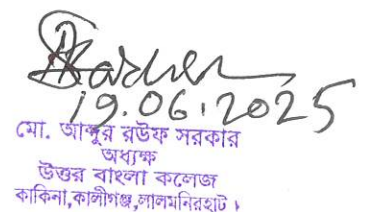 19.06.2025
মো. আব্দুর রউফ সরকার
অধ্যক্ষ
উত্তর বাংলা কলেজ
কাকিনা,কালীগঞ্জ,লালমনিরহাট।